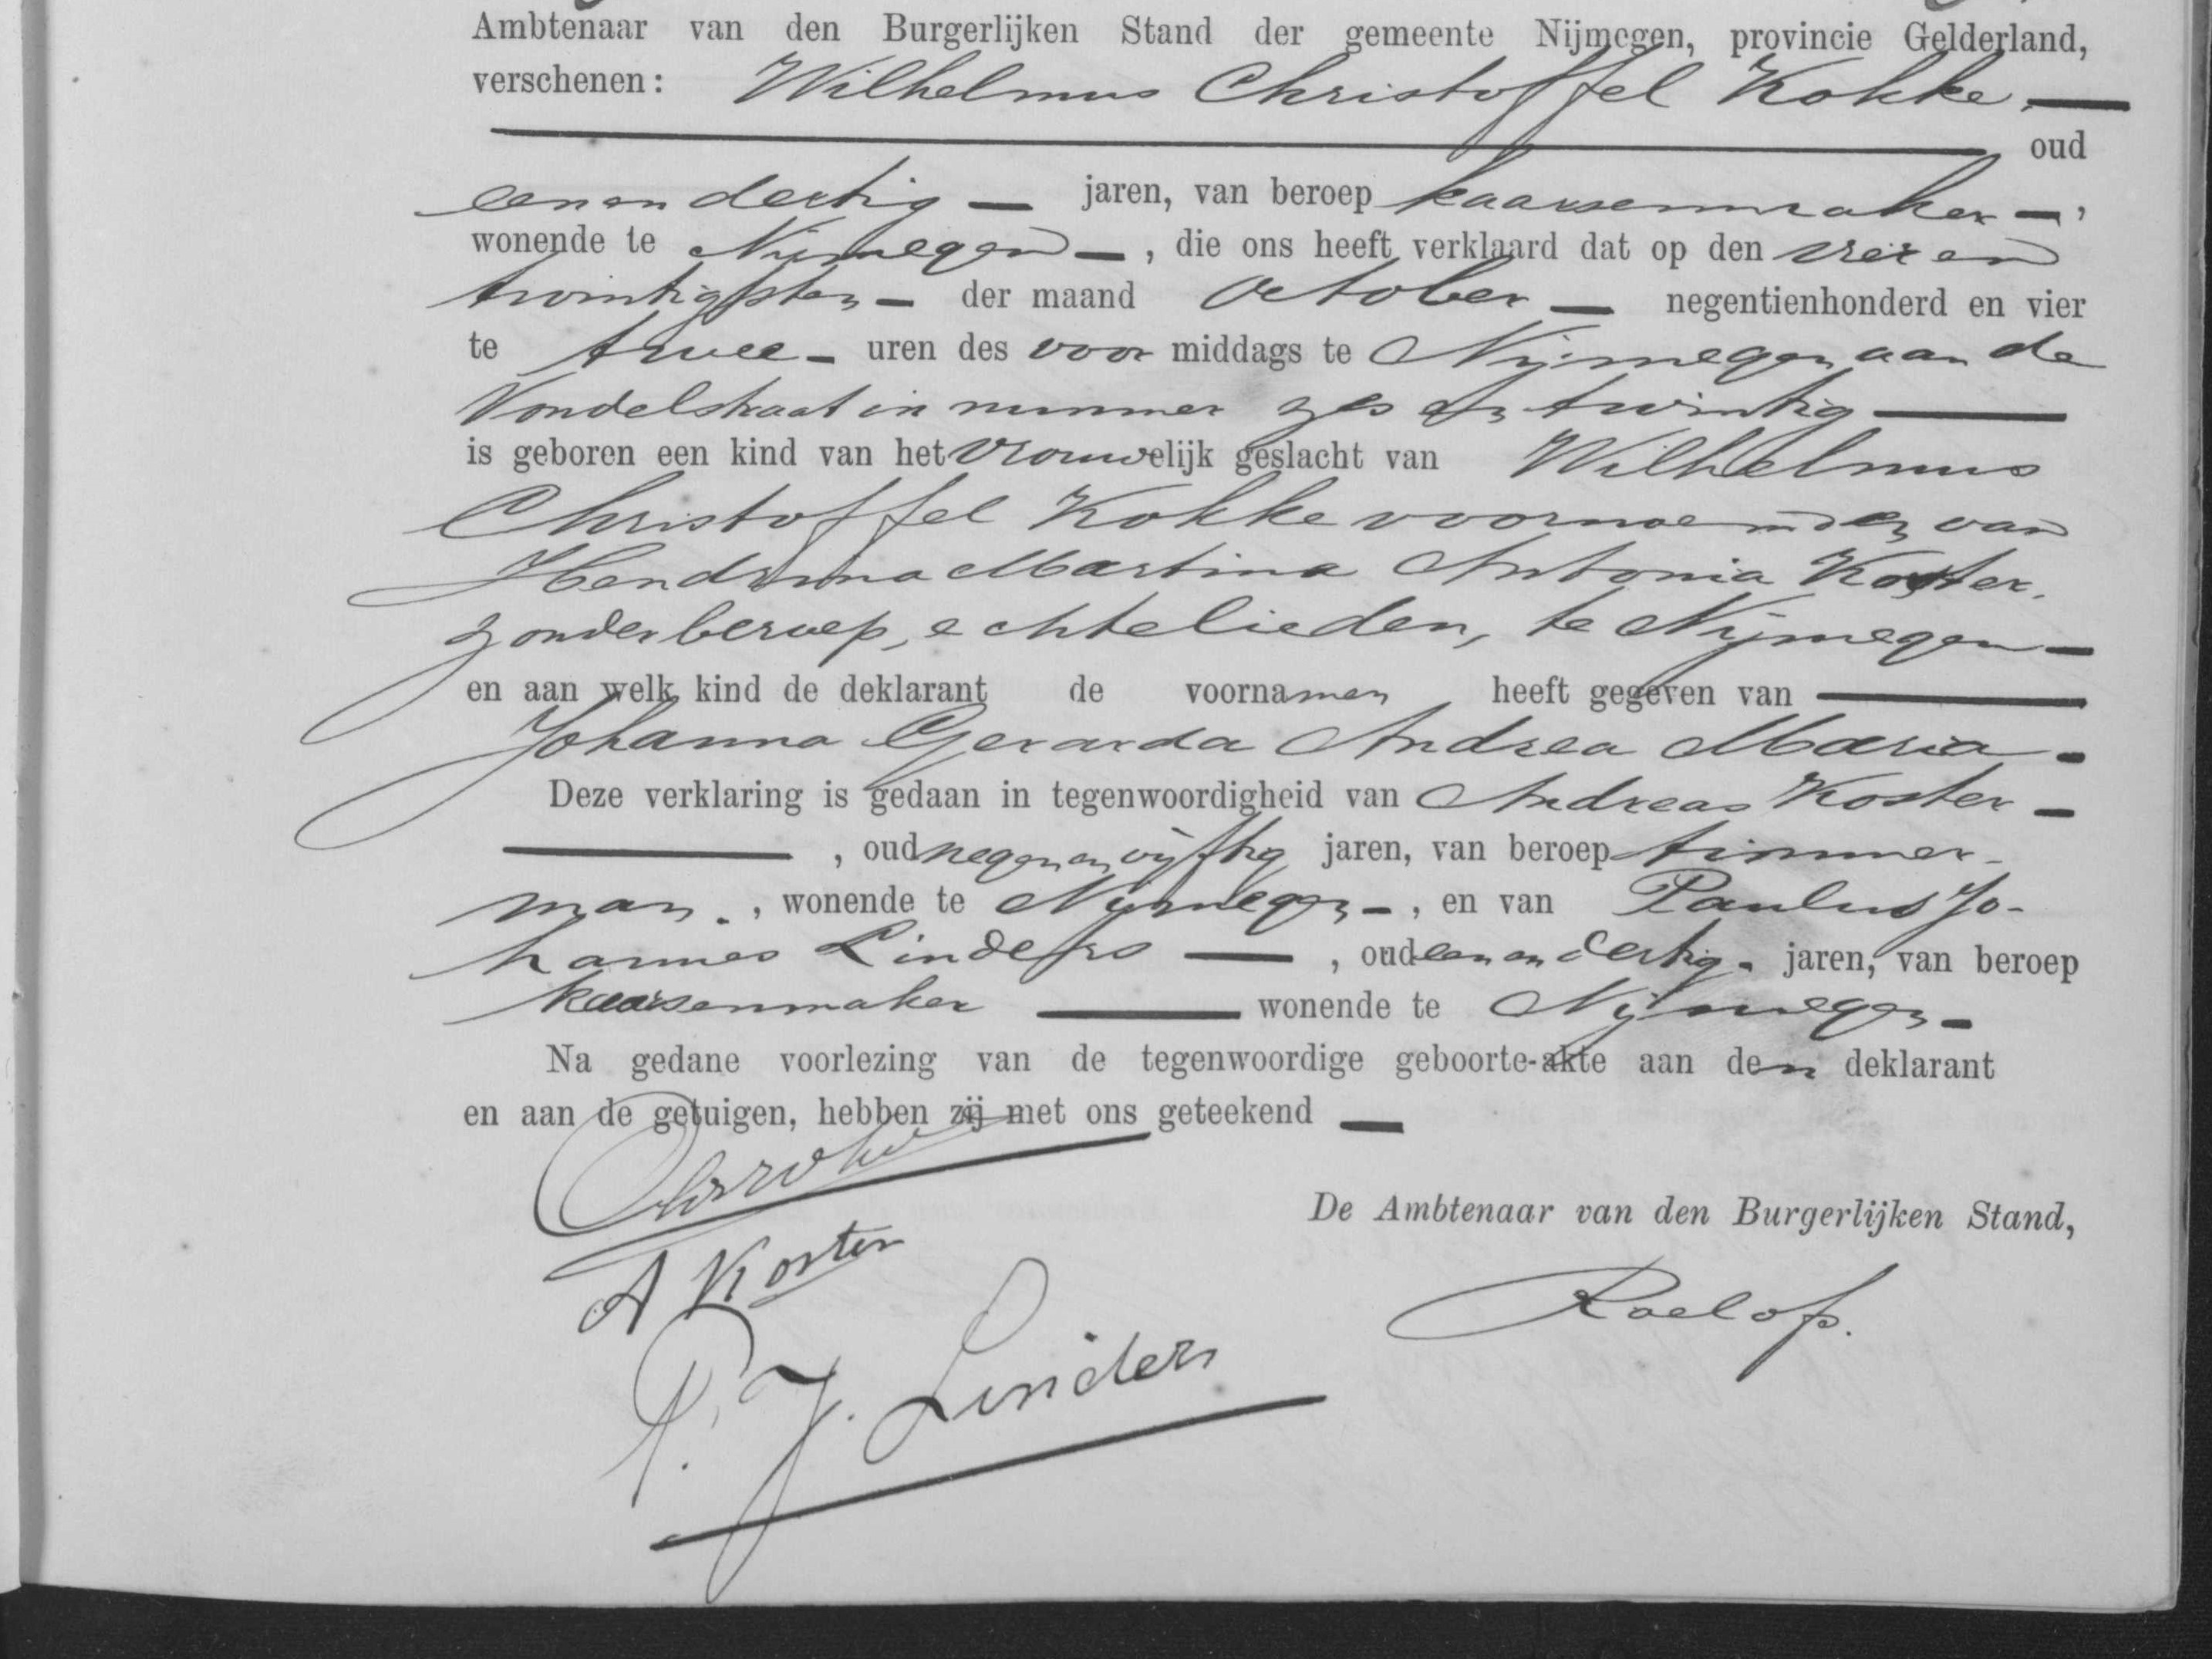 Ambtenaar van den Burgerlijken Stand der gemeente Nijmegen, provincie Gelderland,
verschenen: Wilhelmus Christoffel Kokke
oud
eenendertig jaren, van beroep kaarsenmaker,
wonende te Nijmegen, die ons heeft verklaard dat op den vier en
twintigsten der maand October negentienhonderd en vier
te twee uren des voor middags te Nijmegen aan de
Vondelstraat in nummer zes en twintig
is geboren een kind van het vrouwelijk geslacht van Wilhelmus
Christoffel Kokke voornoemd en van
Hendrina Martina Antonia Koster,
zonder beroep, echtelieden, te Nijmegen
en aan welk kind de deklarant de voornamen heeft gegeven van
Johanna Gerarda Andrea Maria.
Deze verklaring is gedaan in tegenwoordigheid van Andreas Koster
, oud negenenvijftig jaren, van beroep timmer-
man, wonende te Nijmegen, en van Paulus Jo-
hannes Linders, oud eenendertig jaren, van beroep
kaarsenmaker wonende te Nijmegen
Na gedane voorlezing van de tegenwoordige geboorte-akte aan den deklarant
en aan de getuigen, hebben zij met ons geteekend
De Ambtenaar van den Burgerlijken Stand,
A Koster
Roelofs.
P. J. Linders